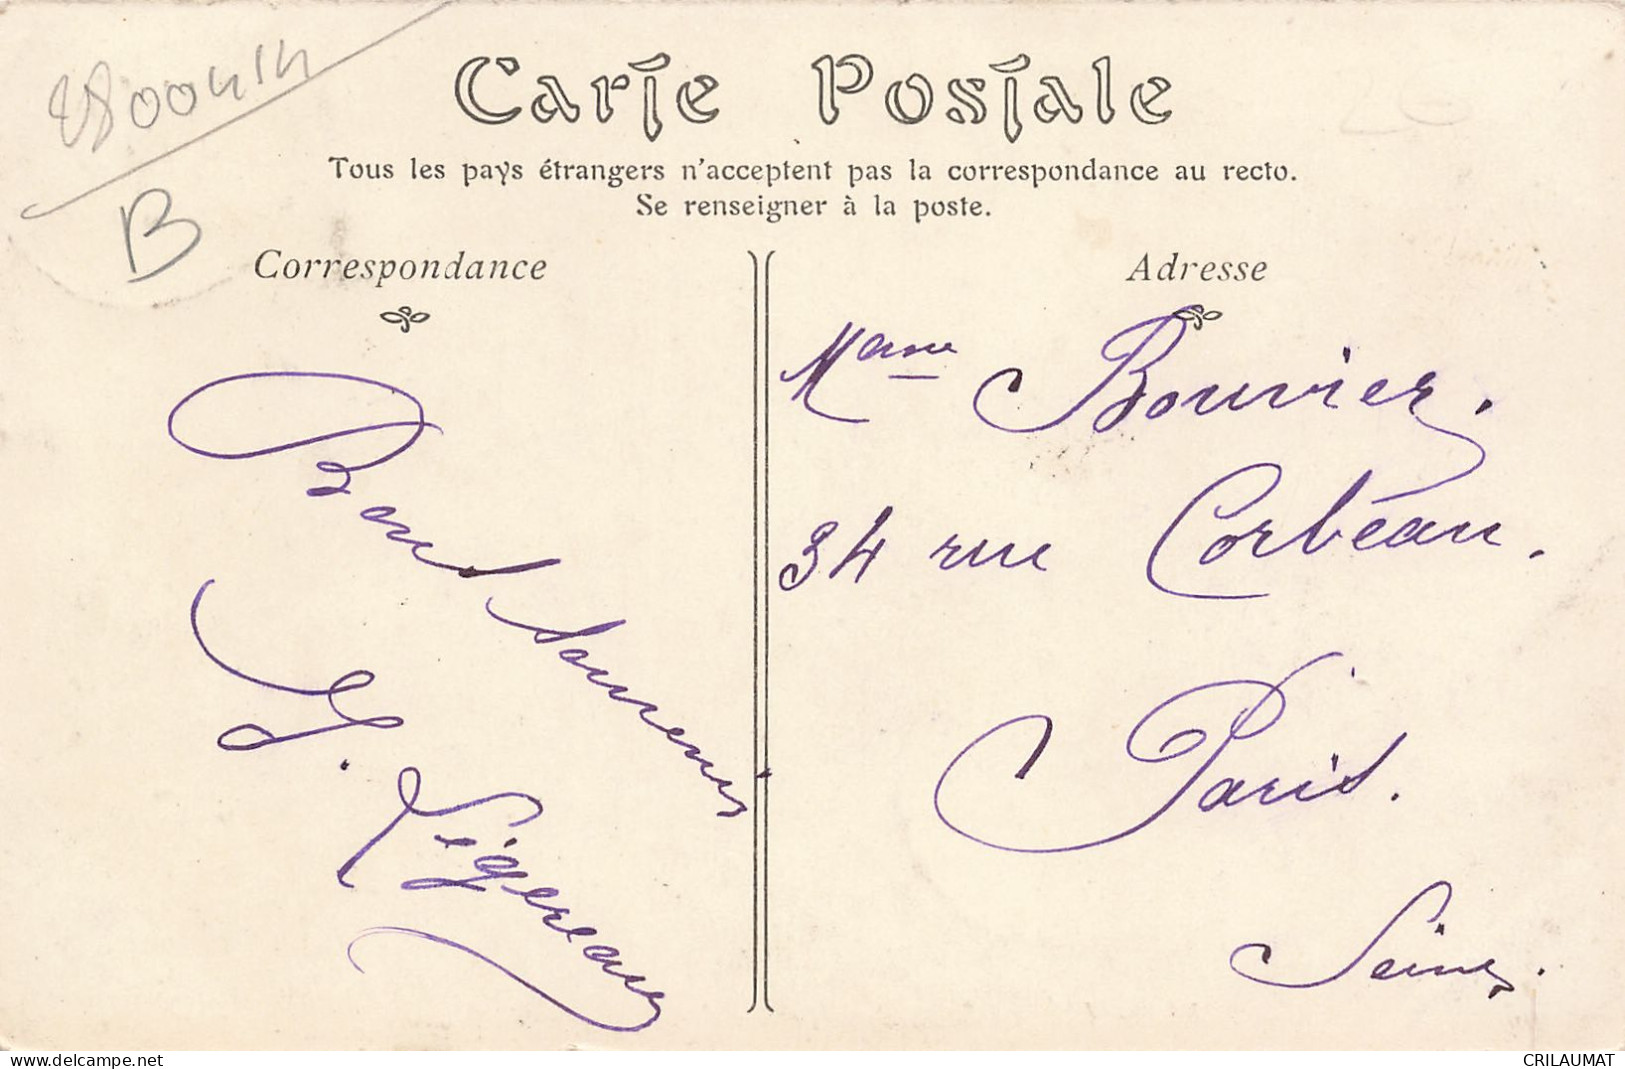 Carte Postale
Tous les pays étrangers n'acceptent pas la correspondance au recto.
Se renseigner à la poste.
B
Correspondance
Bons
Souvenirs
Adresse
Mme Bouvier.
34 rue Corbéau.
Paris.
Seine.
www.delcampe.net
CRILAUMAT